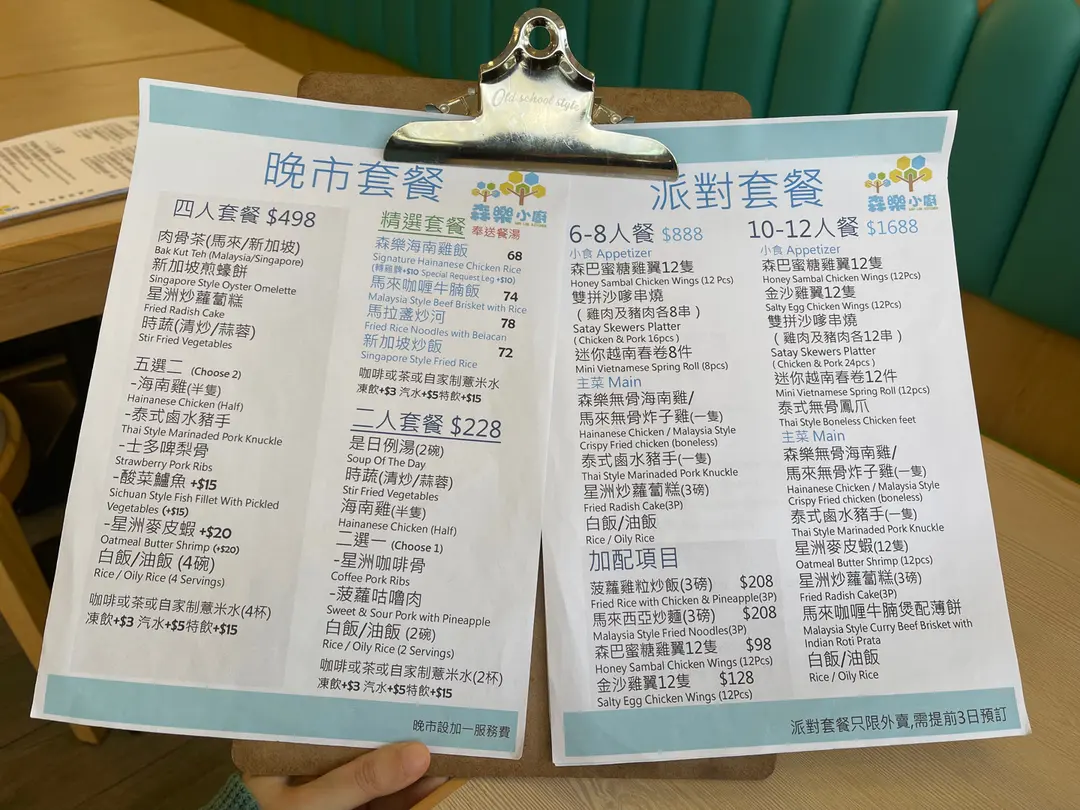 Old school style
晚市套餐
森樂小廚
四人套餐 $498
肉骨茶(馬來/新加坡)
Bak Kut Teh (Malaysia/Singapore)
新加坡煎蠔餅
Singapore Style Oyster Omelette
星洲炒蘿蔔糕
Fried Radish Cake
時蔬(清炒/蒜蓉)
Stir Fried Vegetables
五選二 (Choose 2)
-海南雞(半隻)
Hainanese Chicken (Half)
-泰式鹵水豬手
Thai Style Marinaded Pork Knuckle
-士多啤梨骨
Strawberry Pork Ribs
-酸菜鱸魚 +$15
Sichuan Style Fish Fillet With Pickled
Vegetables (+$15)
-星洲麥皮蝦 +$20
Oatmeal Butter Shrimp (+$20)
白飯/油飯 (4碗)
Rice / Oily Rice (4 Servings)
咖啡或茶或自家制薏米水(4杯)
凍飲+$3 汽水+$5特飲+$15
精選套餐 奉送餐湯
森樂海南雞飯 68
Signature Hainanese Chicken Rice
(轉雞髀+$10 Special Request Leg +$10)
馬來咖喱牛腩飯 74
Malaysia Style Beef Brisket with Rice
馬拉盞炒河 78
Fried Rice Noodles with Belacan
新加坡炒飯 72
Singapore Style Fried Rice
咖啡或茶或自家制薏米水
凍飲+$3 汽水+$5特飲+$15
二人套餐 $228
是日例湯(2碗)
Soup Of The Day
時蔬(清炒/蒜蓉)
Stir Fried Vegetables
海南雞(半隻)
Hainanese Chicken (Half)
二選一 (Choose 1)
-星洲咖啡骨
Coffee Pork Ribs
-菠蘿咕嚕肉
Sweet & Sour Pork with Pineapple
白飯/油飯 (2碗)
Rice / Oily Rice (2 Servings)
咖啡或茶或自家制薏米水(2杯)
凍飲+$3 汽水+$5特飲+$15
晚市設加一服務費
派對套餐
森樂小廚
6-8人餐 $888
小食 Appetizer
森巴蜜糖雞翼12隻
Honey Sambal Chicken Wings (12 Pcs)
雙拼沙嗲串燒
( 雞肉及豬肉各8串 )
Satay Skewers Platter
(Chicken & Pork 16pcs )
迷你越南春卷8件
Mini Vietnamese Spring Roll (8pcs)
主菜 Main
森樂無骨海南雞/
馬來無骨炸子雞(一隻)
Hainanese Chicken / Malaysia Style
Crispy Fried chicken (boneless)
泰式鹵水豬手(一隻)
Thai Style Marinaded Pork Knuckle
星洲炒蘿蔔糕(3磅)
Fried Radish Cake(3P)
白飯/油飯
Rice / Oily Rice
加配項目
菠蘿雞粒炒飯(3磅) $208
Fried Rice with Chicken & Pineapple(3P)
馬來西亞炒麵(3磅) $208
Malaysia Style Fried Noodles(3P)
森巴蜜糖雞翼12隻 $98
Honey Sambal Chicken Wings (12Pcs)
金沙雞翼12隻 $128
Salty Egg Chicken Wings (12Pcs)
10-12人餐 $1688
小食 Appetizer
森巴蜜糖雞翼12隻
Honey Sambal Chicken Wings (12Pcs)
金沙雞翼12隻
Salty Egg Chicken Wings (12Pcs)
雙拼沙嗲串燒
( 雞肉及豬肉各12串 )
Satay Skewers Platter
( Chicken & Pork 24pcs )
迷你越南春卷12件
Mini Vietnamese Spring Roll (12pcs)
泰式無骨鳳爪
Thai Style Boneless Chicken feet
主菜 Main
森樂無骨海南雞/
馬來無骨炸子雞(一隻)
Hainanese Chicken / Malaysia Style
Crispy Fried chicken (boneless)
泰式鹵水豬手(一隻)
Thai Style Marinaded Pork Knuckle
星洲麥皮蝦(12隻)
Oatmeal Butter Shrimp (12pcs)
星洲炒蘿蔔糕(3磅)
Fried Radish Cake(3P)
馬來咖喱牛腩煲配薄餅
Malaysia Style Curry Beef Brisket with
Indian Roti Prata
白飯/油飯
Rice / Oily Rice
派對套餐只限外賣,需提前3日預訂